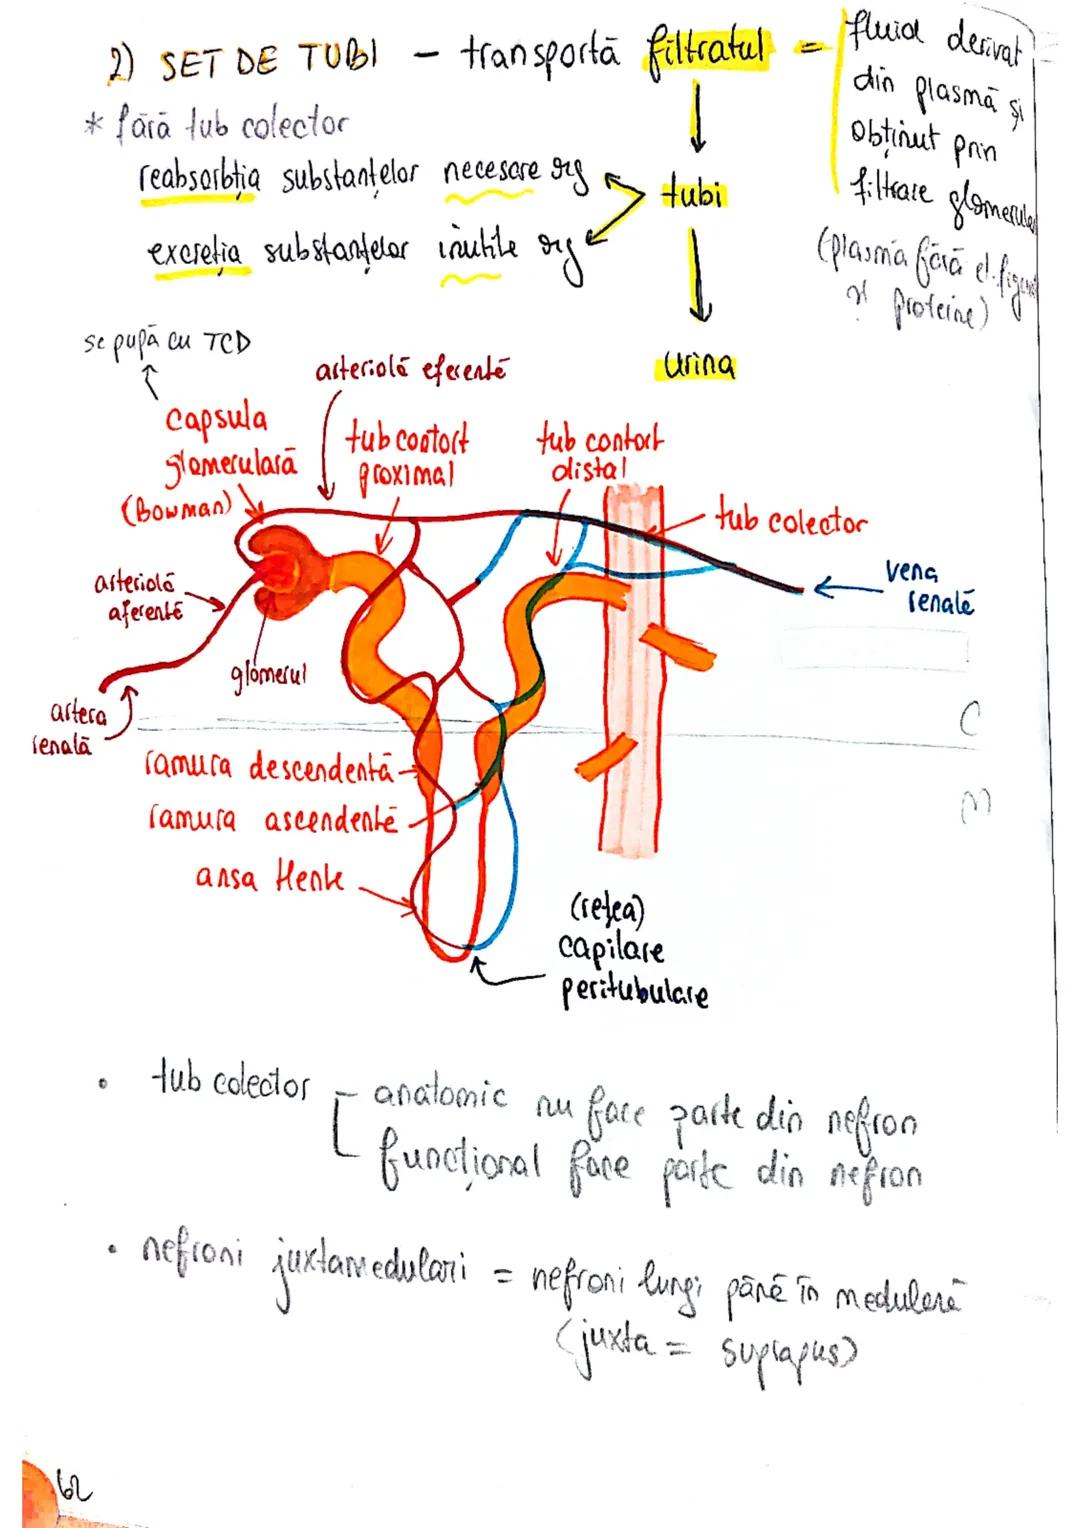 2) SET DE TUBI - transportă filtratul = fluid derivat
din plasmă și
obținut prin
filtrare glomerular
(plasmă fără el. figurat
și proteine)
* fără tub colector
reabsorbția substanțelor necesare org
tubi
excreția substanțelor inutile org
urina
se pupă cu TCD
arteriolă eferentă
capsula
glomerulară
(Bowman)
tub contort
proximal
tub contort
distal
tub colector
vena
renală
arteriolă
aferentă
glomerul
artera
renală
C
M
ramura descendentă
ramura ascendentă
ansa Henle
(rețea)
capilare
peritubulare
• tub colector - anatomic nu face parte din nefron
funcțional face parte din nefron
• nefroni juxtamedulari = nefroni lungi până în medulară
(juxta = suprapus)
62